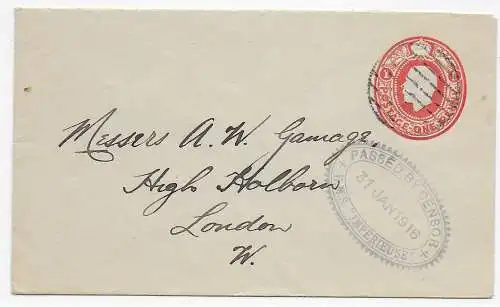 POSTAGE ONE
Messers A. W. Gamage,
High Holborn
London
W.
PASSED BY CENSOR
31 JAN 1918